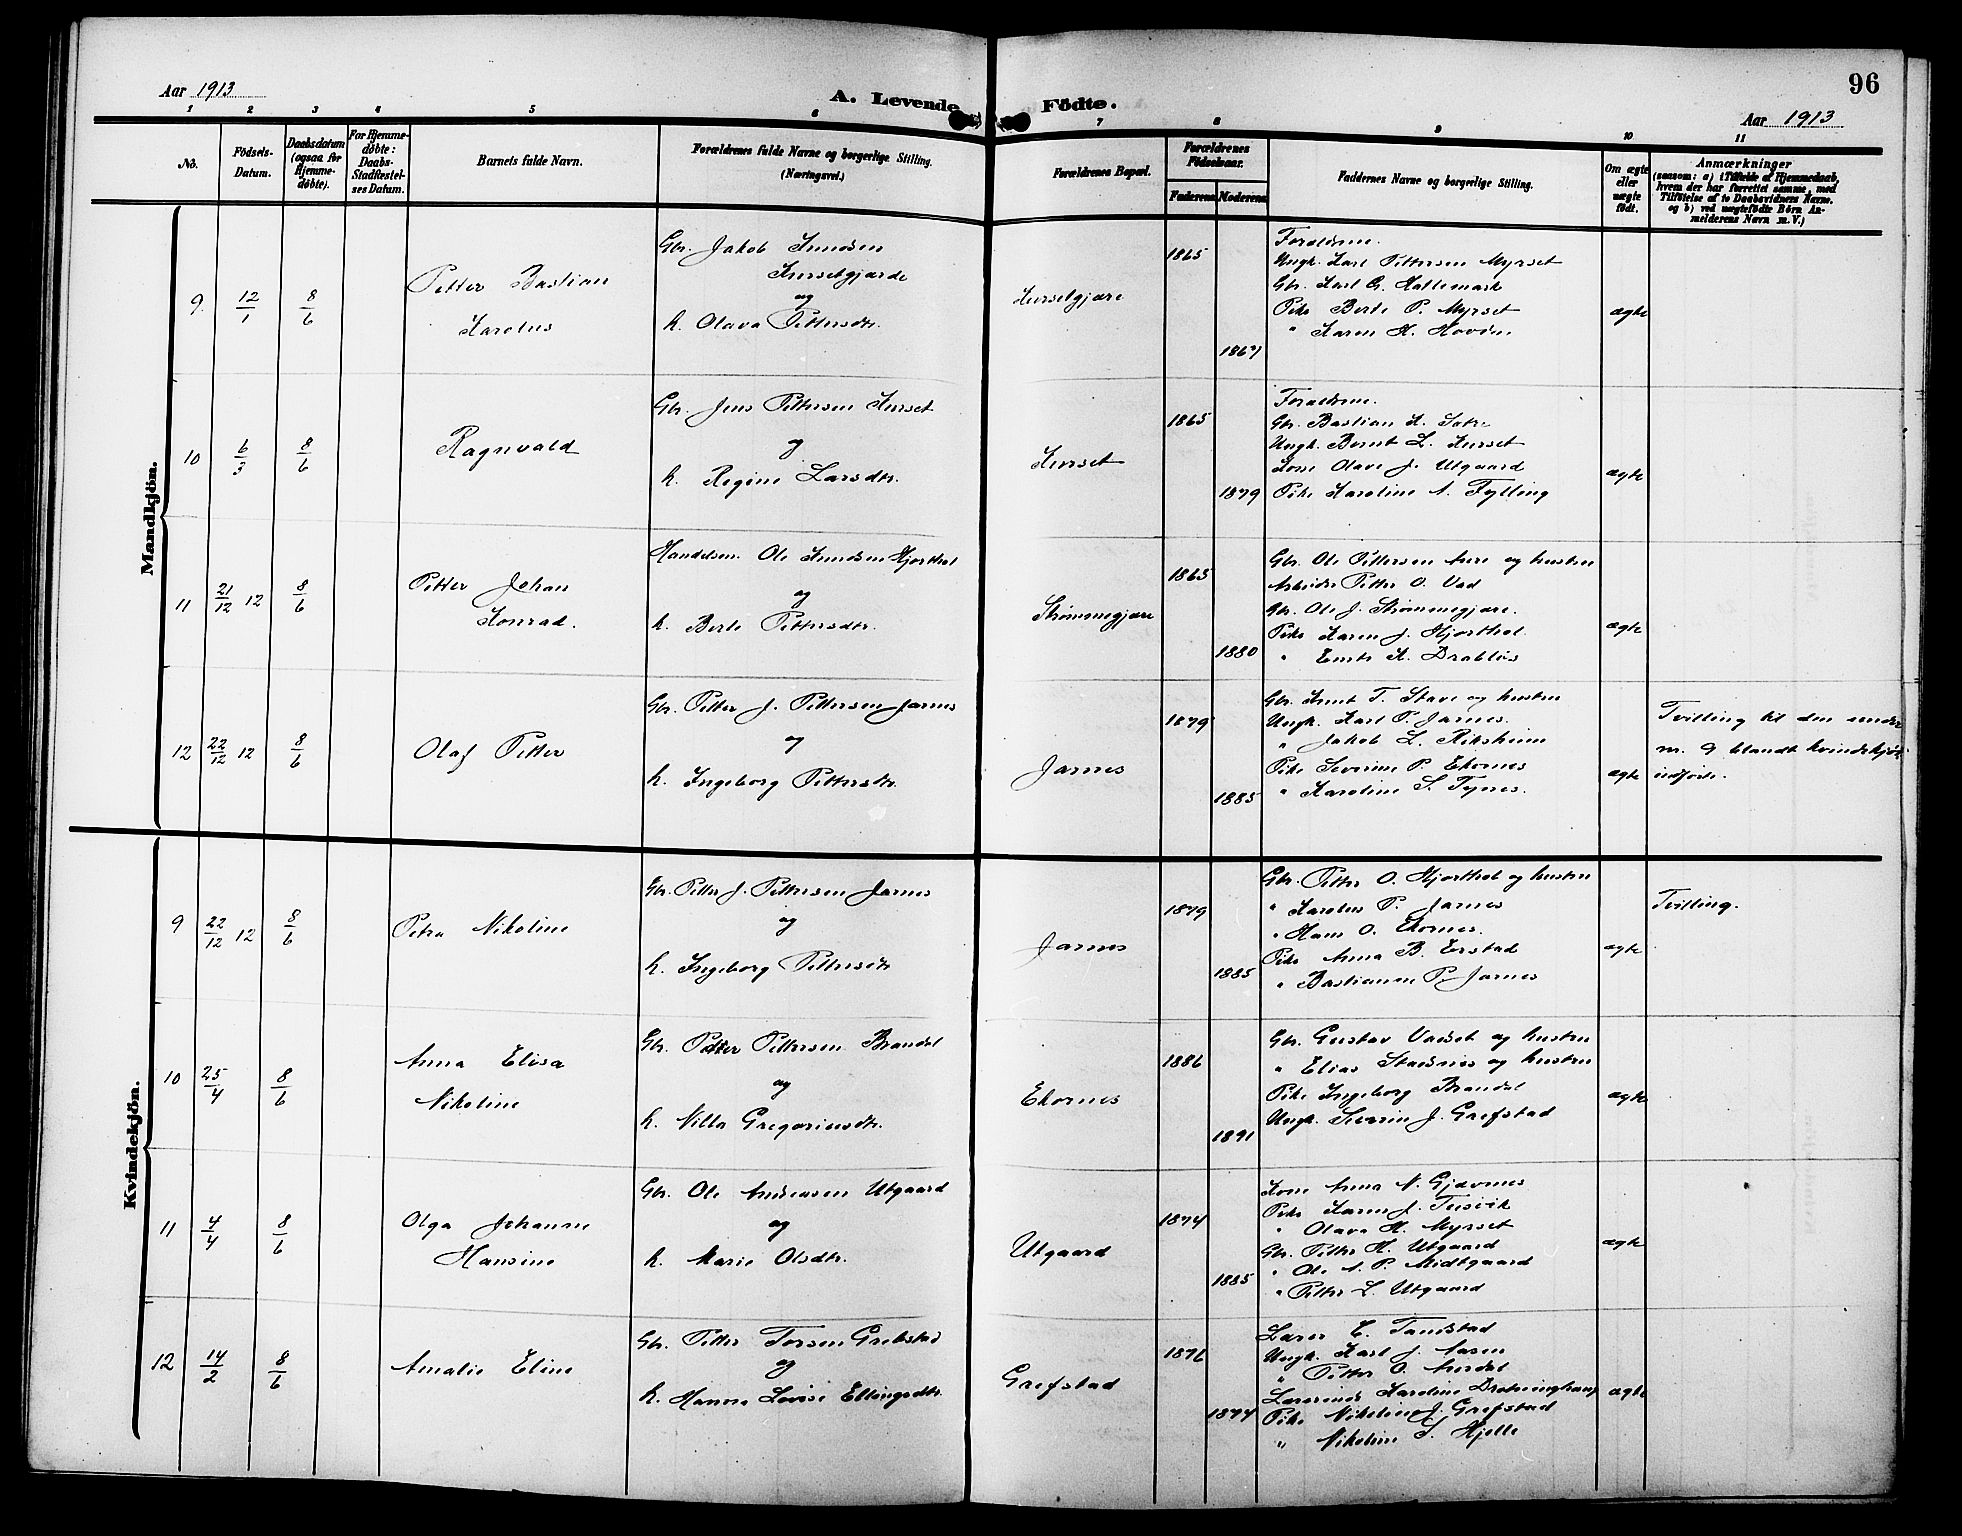 Aar 1913
A. Levende Födte.
96
Aar 1913
1 2 3 4 5 6 7 8 9 10 11
No.
Födsels-Datum.
Daabsdatum (ogsaa for Hjemme-döbte).
For Hjemme-döbte: Daabs-Stadfæstel-ses Datum.
Barnets fulde Navn.
Forældrenes fulde Navne og borgerlige Stilling. (Næringsvei.)
Forældrenes Bopæl.
Forældrenes Födselsaar.
Faderens Moderens
Faddernes Navne og borgerlige Stilling.
Om ægte eller uægte födt.
Anmærkninger
(saasom: a) i Tilfælde af Hjemmedaab,
hvem der har forrettet samme, med
Tilföielse af to Daabsvidners Navne.
og b) ved uægtefödte Börn An-
melderens Navn m. V.)
Mandkjön.
9. 12/1 8/6
Petter Bastian
Karolus
Gbr. Jakob Knudsen
Kursetgjærde
og
h. Olava Pettersdtr.
Kursetgjære
1865
1867
Forældrene.
Ungk. Karl Pettersen Myrset
Gbr. Karl G. Hallemark
Pike Berte P. Myrset
" Karen H. Hovden
ægte
10 6/3 8/6
Ragnvald
Gbr. Jens Pettersen Kurset
og
h. Regine Larsdtr.
Kurset
1865
1879
Forældrene.
Gbr. Bastian K. Satre
Ungk. Bernt L. Kurset
Kone Olave J. Utgaard
Pike Karoline A. Fylling
ægte
11 21/12 12 8/6
Petter Johan
Konrad.
Handelsm. Ole Knudsen Hjorthol
og
h. Berte Pettersdtr.
Strømmegjære
1865
1880
Gbr. Ole Pettersen Aure og hustru
Arbeider Petter O. Vad
Gbr. Ole J. Strømmegjære.
Pike Karen J. Hjorthol.
" Emte K. Drabløs
ægte
12 22/12 12 8/6
Olaf Petter
Gbr. Petter J. Pettersen Jarnes
og
h. Ingeborg Pettersdtr.
Jarnes
1879
1885
Gbr. Knut T. Stave og hustru
Ungk. Karl P. Jarnes.
" Jakob L. Riksheim
Pike Severine P. Ekornes
" Karoline S. Tynes.
ægte
Tvilling til den under
nr. 9 blandt kvindekjøn
indførte.
Kvindekjön.
9 22/12 12 8/6
Petra Nikoline
Gbr. Petter J. Pettersen Jarnes
og
h. Ingeborg Pettersdtr
Jarnes
1879
1885
Gbr. Petter O. Hjorthol og hustru
" Karolus P. Jarnes
" Hans O. Ekornes.
Pike Anna B. Erstad
" Bastianne P. Jarnes
ægte
Tvilling.
10 25/4 8/6
Anna Elisa
Nikoline
Gbr. Petter Pettersen Brandal
og
h. Nilla Gregoriusdtr.
Ekornes
1886
1891
Gbr. Gustav Vadset og hustru
" Elias Stadsnes og hustru
Pike Ingeborg Brandal
Ungk. Severin J. Grefstad
ægte
11 4/4 8/6
Olga Johanne
Hansine
Gbr. Ole Andreasen Utgaard
og
h. Marie Olsdtr.
Utgaard
1874
1885
Kone Anna N. Gjævenes
Pike Karen J. Tusvik
" Olava H. Myrset
Gbr. Petter H. Utgaard
" Ole A. P. Midtgaard
" Petter L. Utgaard
ægte
12 14/2 8/6
Amalie Eline
Gbr. Petter Torsen Grebstad
og
h. Hanna Lovise Ellingsdtr.
Grefstad
1876
1874
Lærer E. Tandstad
Ungk. Karl J. Aasen
" Petter O. Aursdal
Lærerinde Karoline Drotninghaug
Pike Nikoline J. Grefstad
" Nikoline S. Hjelle
ægte